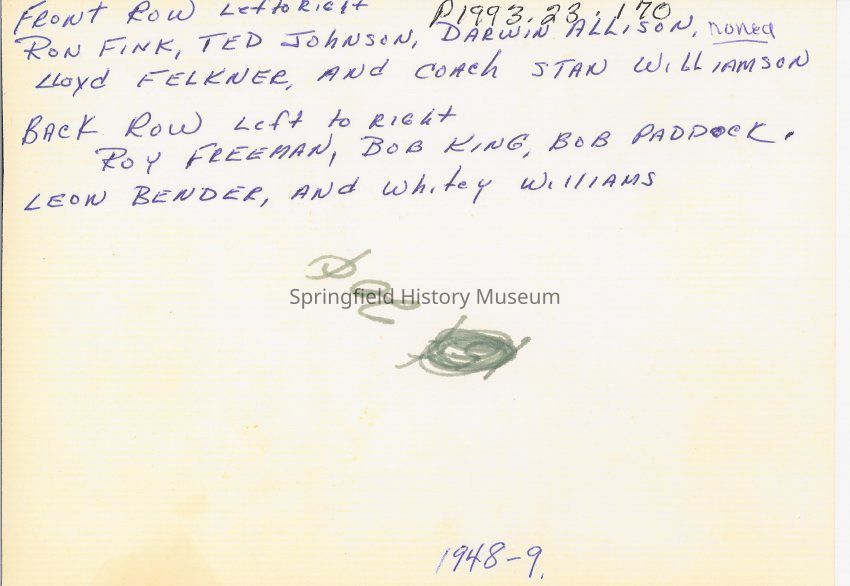 FRONT ROW Left to Right
P1993.23.170
RON FINK, TED JOHNSON, DARWIN ALLISON,
LLOYD FELKNER, AND COACH STAN WILLIAMSON
BACK ROW Left to RIGHT
ROY FREEMAN, BOB KING, BOB PADDOCK.
LEON BENDER, AND Whitey WILLIAMS
Springfield History Museum
1948-9.